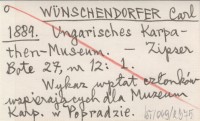 WÜNSCHENDORFER Carl
1889. Ungarisches Karpa-
then-Museum. — Zipser
Bote 27, nr 12: 1.
Wykaz wpłat członków
wspierających dla Muzeum
Karp. w Popradzie.